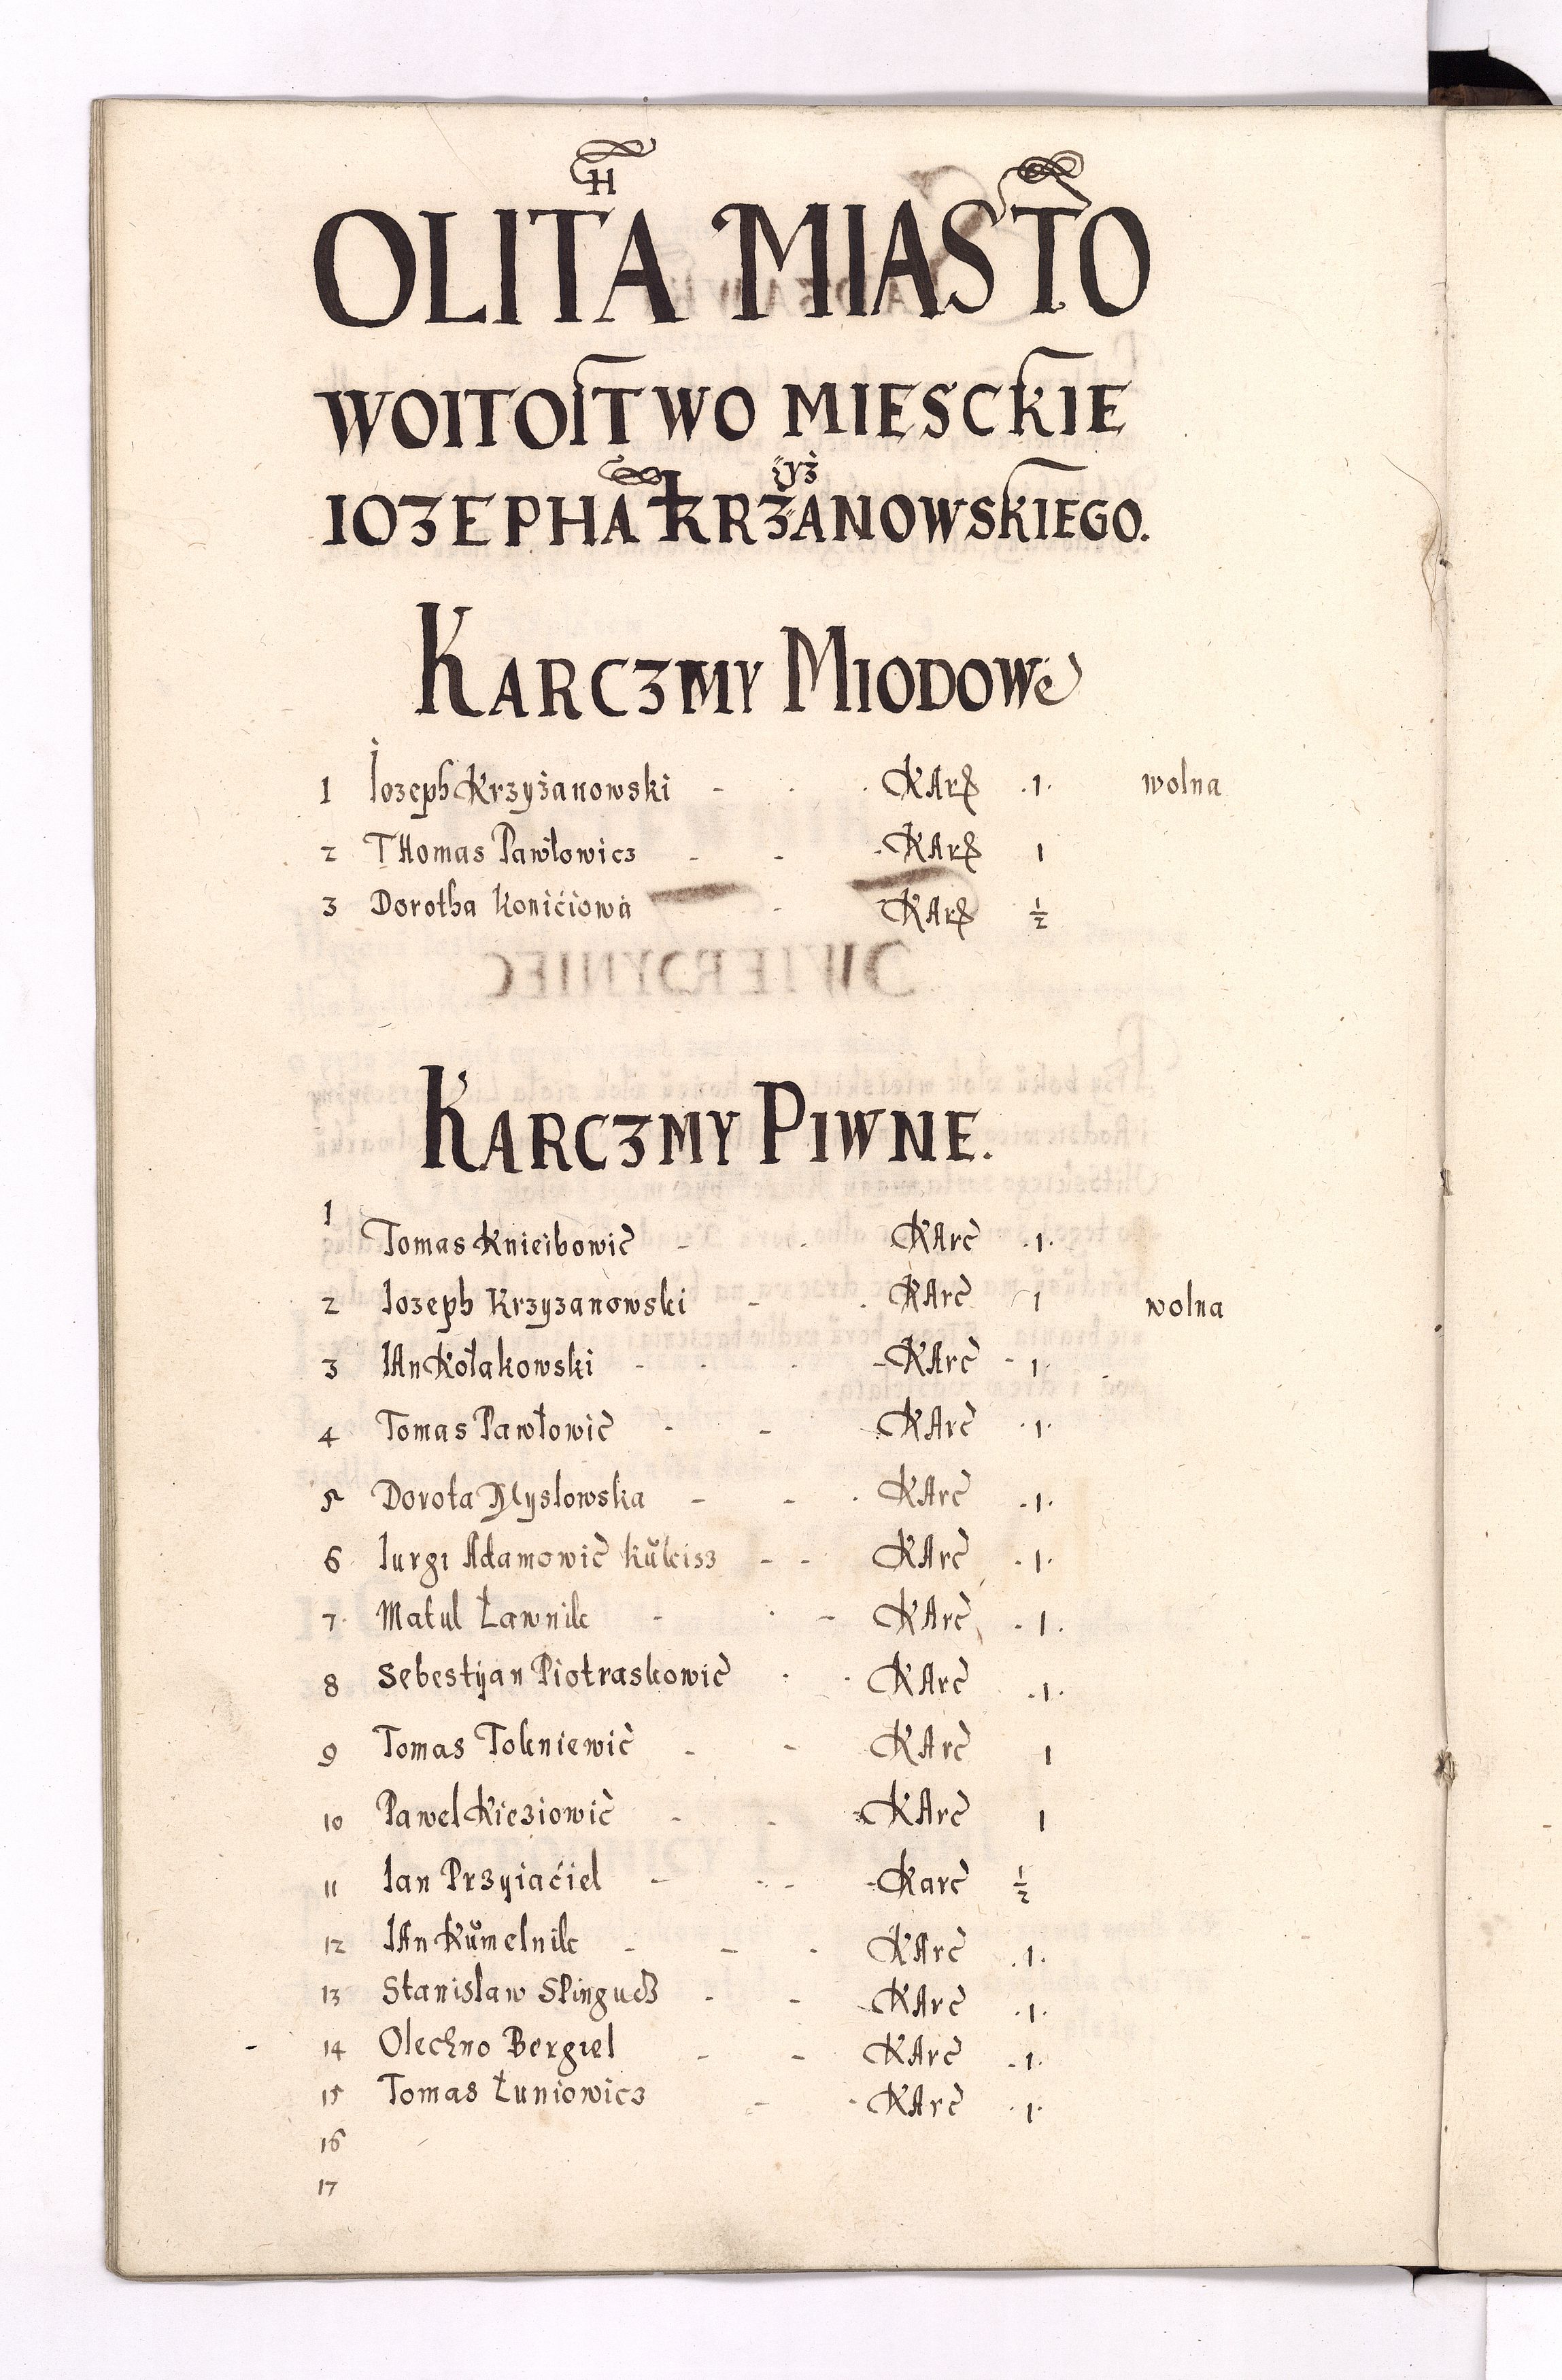 H
OLITA MIASTO
WOITOſTWO MIESCKIE
yż
IOZEPHA KRZANOWSKIEGO.
KARCZMY MIODOWe
1 Iozeph Krzyżanowski - . . KArȥ .1. wolna
2 THomas Pawłowicz - - . KArȥ 1
3 Dorotha Konićiowa - KArȥ ½
KARCZMY PIWNE.
1
Tomas Knieibowič - . KArč .1.
2 Iozeph Krzyzanowski - . KArč 1 wolna
3 IAn Kołakowski - . . - KArč - 1.
4 Tomas Pawłowič - - . KArč .1.
5 Dorota Myslowska - - . KArč .1.
6 Iurgi Adamowič kŭkisz - - KArč .1.
7. Matul Ławnik - . - KArč .1.
8 Sebestÿan Piotraskowič . . KArč .1.
9 Tomas Tokniewič - - KArč 1
10 Pawel Kieziowič - - KArč 1
11 Ian Przyiaćiel - . - - Karč ½
12 IAn Kŭmelnik - - . KArč .1.
13 Stanislaw - - KArč .1.
14 Olechno Bergiel - - KArč .1.
15 Tomas Łuniowicz - . KArč .1.
16
17